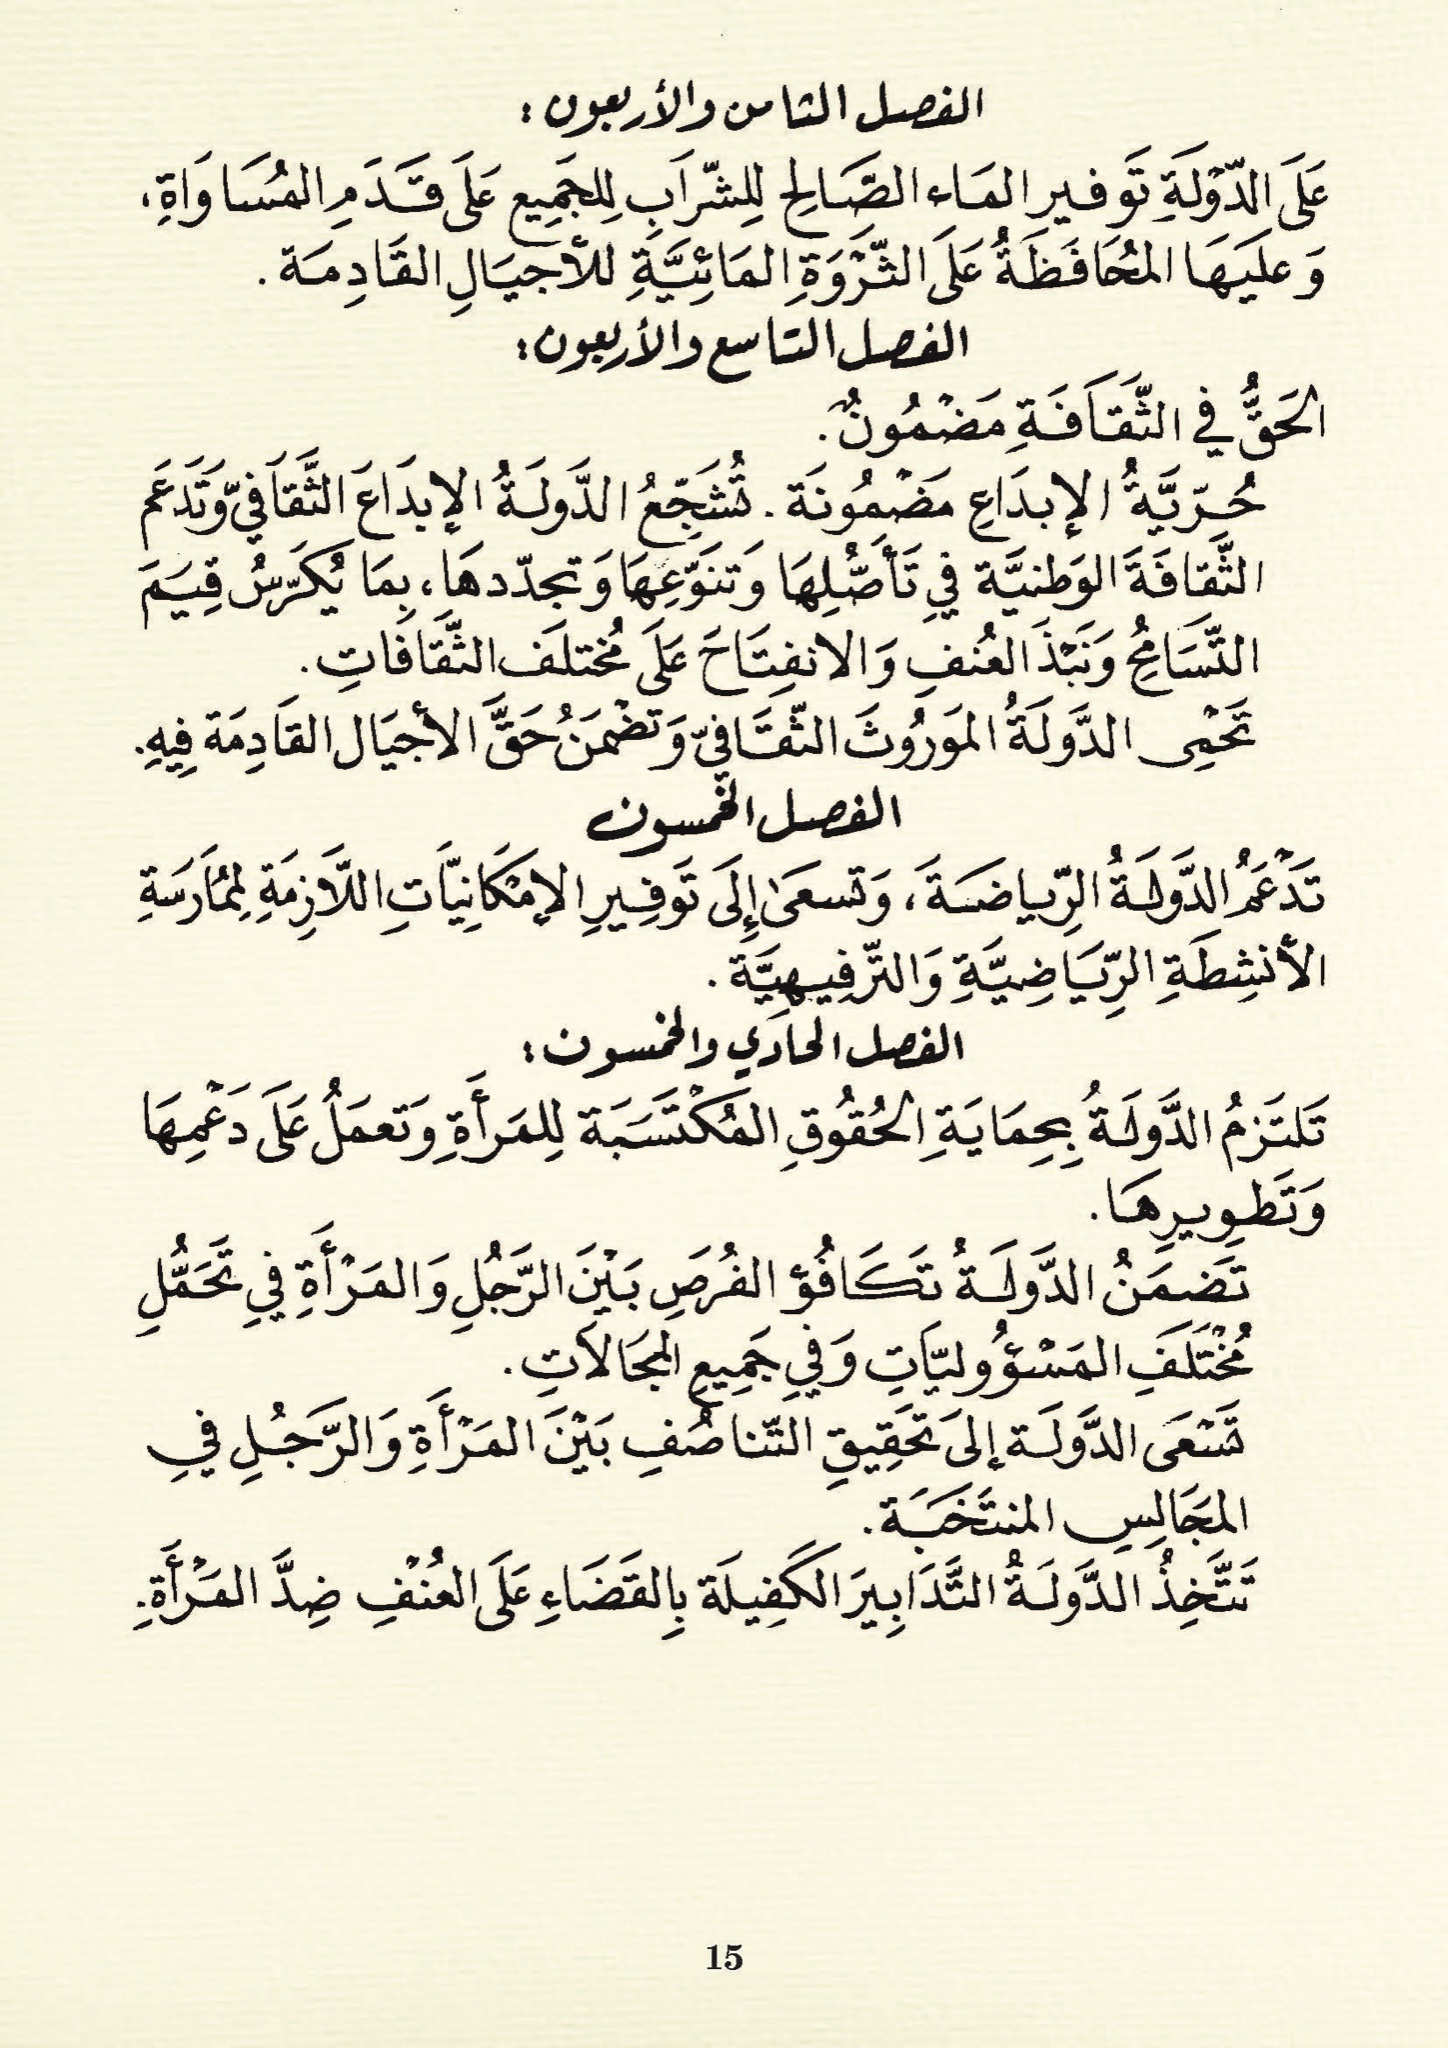 الفصل الثامن والأربعون :
عَلَى الدّوْلَةِ تَوفير المَاء الصَّالِحِ لِلشّرَابِ لِلجَمِيع عَلَى قَدَمِ المُسَاوَاةِ،
وَعليَهَا المُحَافَظَةُ عَلَى الثّرْوَةِ المَائِيَّةِ للأجيَالِ القَادِمَة .
الفصل التاسع والأربعون :
الحَقُّ في الثَّقَافَةِ مَضْمُونٌ.
حُرّيَّةُ الإبدَاعِ مَضْمُونَة . تُشَجِّعُ الدَّولَةُ الإبدَاعَ الثَّقَافيّ وَتَدعَم
الثَّقافَةَ الوَطنيَّة فيِ تَأصّلِهَا وَتنوّعِهَا وَتجدّدهَا، بِمَا يُكَرّسُ قِيَمَ
التَّسَامُحِ وَنَبْذَ العُنفِ وَالانفِتَاحَ عَلَى مُختلَف الثَّقَافَاتِ.
تَحْمِي الدَّولَةُ المَورُوثَ الثّقَافيّ وَتضْمَنُ حَقَّ الأجيَال القَادِمَة فِيهِ.
الفصل الخمسون
تَدْعَمُ الدَّولَةُ الرِّياضَةَ، وَتَسعَى إِلَى تَوفِيرِ الإمْكَانِيَّاتِ اللَّازِمَةِ لِمُمَارَسَةِ
الأنشِطَةِ الرِّيَاضِيَّةِ وَالتّرفِيهِيَّة .
الفصل الحادي والخمسون :
تَلتَزمُ الدَّولَةُ بِحِمَايَةِ الحُقُوقِ المُكْتَسَبَة لِلمَرأَةِ وَتَعمَلُ عَلَى دَعْمِهَا
وَتَطوِيرِهَا.
تَضمَنُ الدَّولَةُ تَكَافُؤ الفُرَصِ بَيْنَ الرَّجُلِ وَالمَرْأَةِ فيِ تَحَمُّلِ
مُخْتَلَفِ المَسْؤُوليّاتِ وَفيِ جَمِيعِ المجَالَاتِ.
تَسْعَى الدَّولَة إلىَ تَحَقِيقِ التّناصُفِ بَيْنَ المَرْأَةِ وَالرَّجُلِ فيِ
المجَالِسِ المنتَخَبَة.
تَتَّخِذُ الدَّولَةُ التَّدَابِيرَ الكَفِيلَة بِالقَضَاءِ عَلَى العُنْفِ ضِدَّ المَرْأَةِ.
15